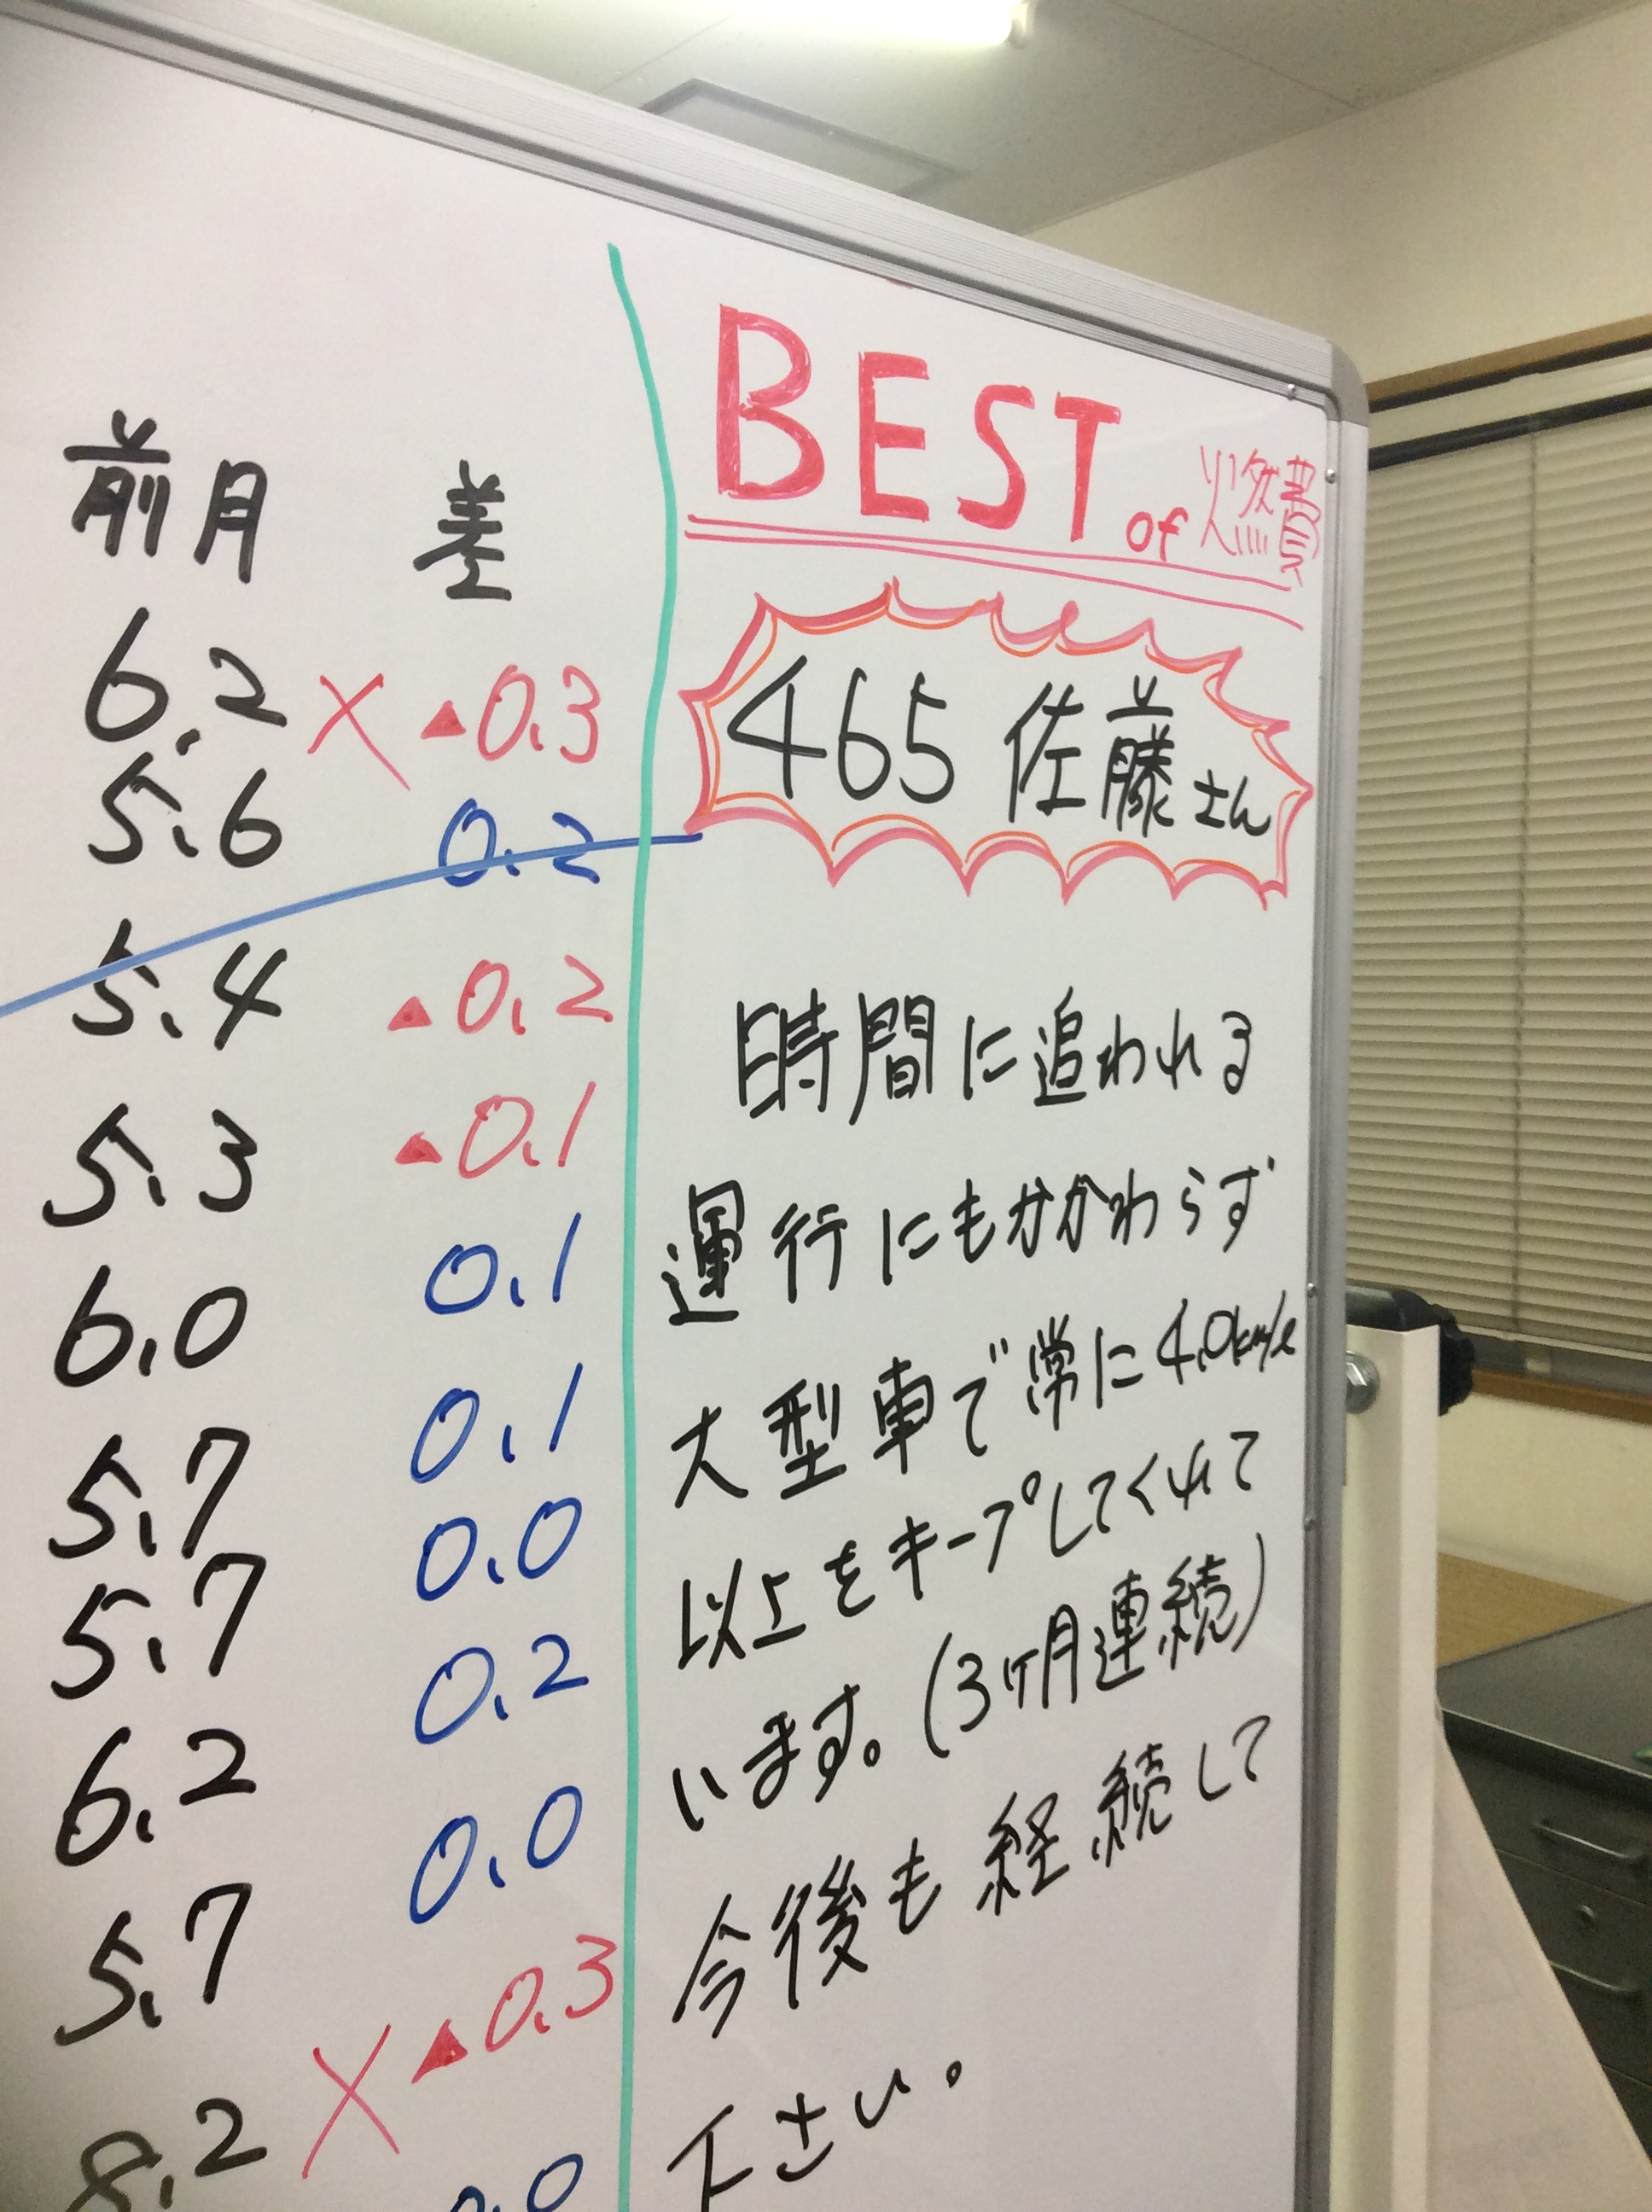 前月 差
6.2 × ▲0.3
5.6 0.2
5.4 ▲0.2
5.3 ▲0.1
6.0 0.1
5.7 0.1
5.7 0.0
6.2 0.2
5.7 0.0
8.2 × ▲0.3
0.0
BEST of 燃費
465 佐藤さん
時間に追われる
運行にもかかわらず
大型車で常に4.0km/ℓ
以上をキープしてくれて
います。(3ヶ月連続)
今後も経続して
下さい。